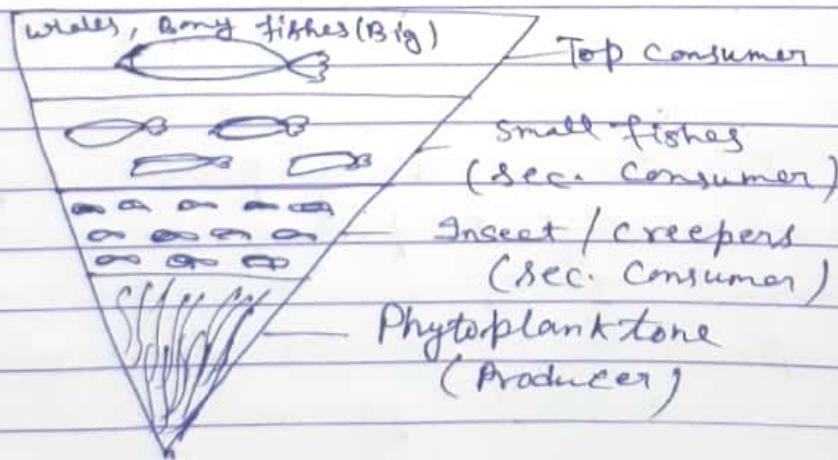 wales, Bony fishes (Big)
Top consumer
small fishes
(sec. consumer)
Insect / creepers
(sec. consumer)
Phytoplanktone
(Producer)